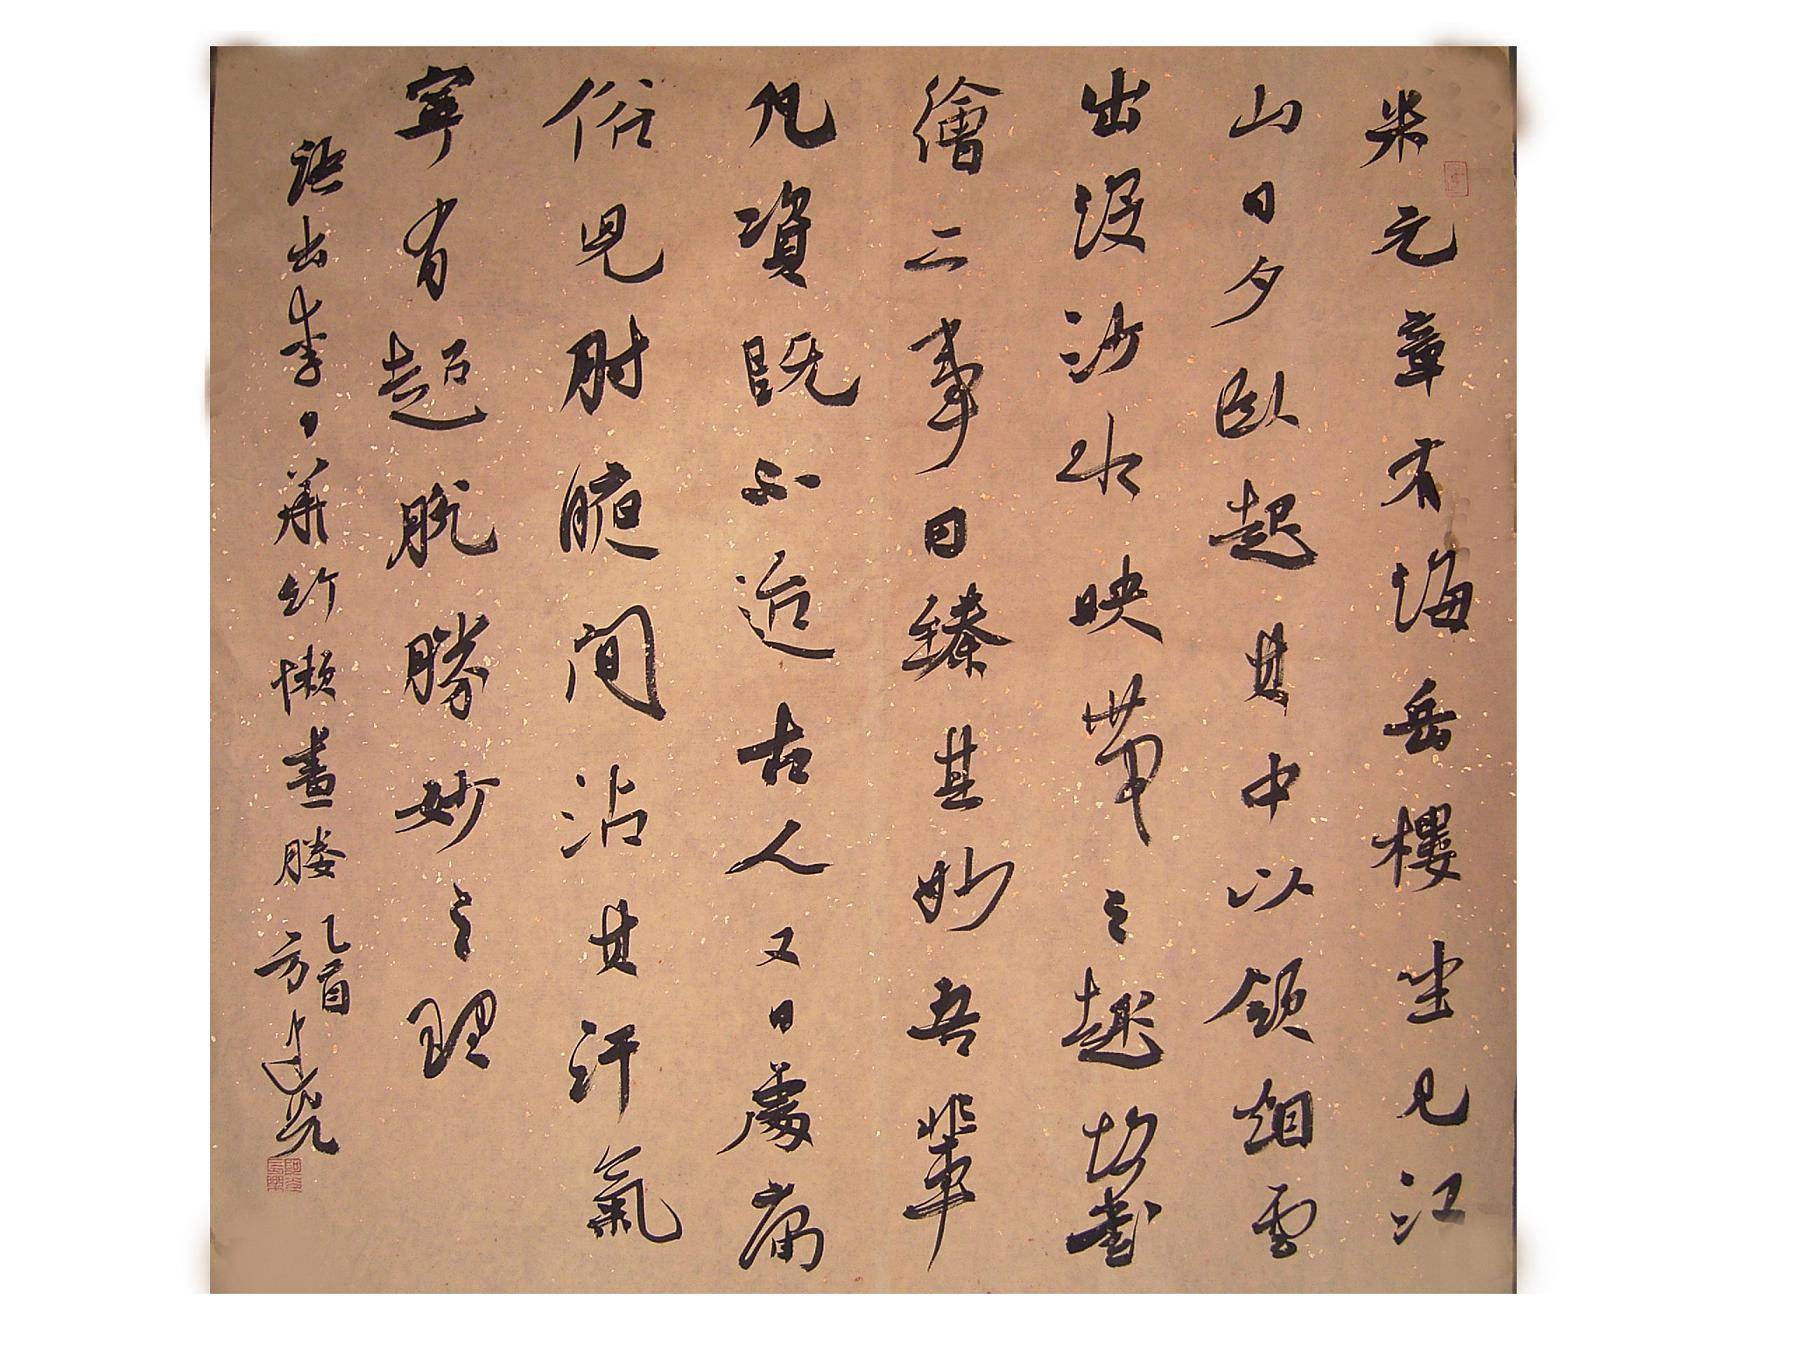 米元章有海岳樓坐見江
山日夕臥起其中以領烟雲
出沒沙水映帶之趣故書
繪二事日臻其妙吾輩
凡資既不近古人又日處庸
俗兒肘腋間沾其汗氣
寧有超脫勝妙之理
語出李日華竹懶畫媵 乙酉
方建